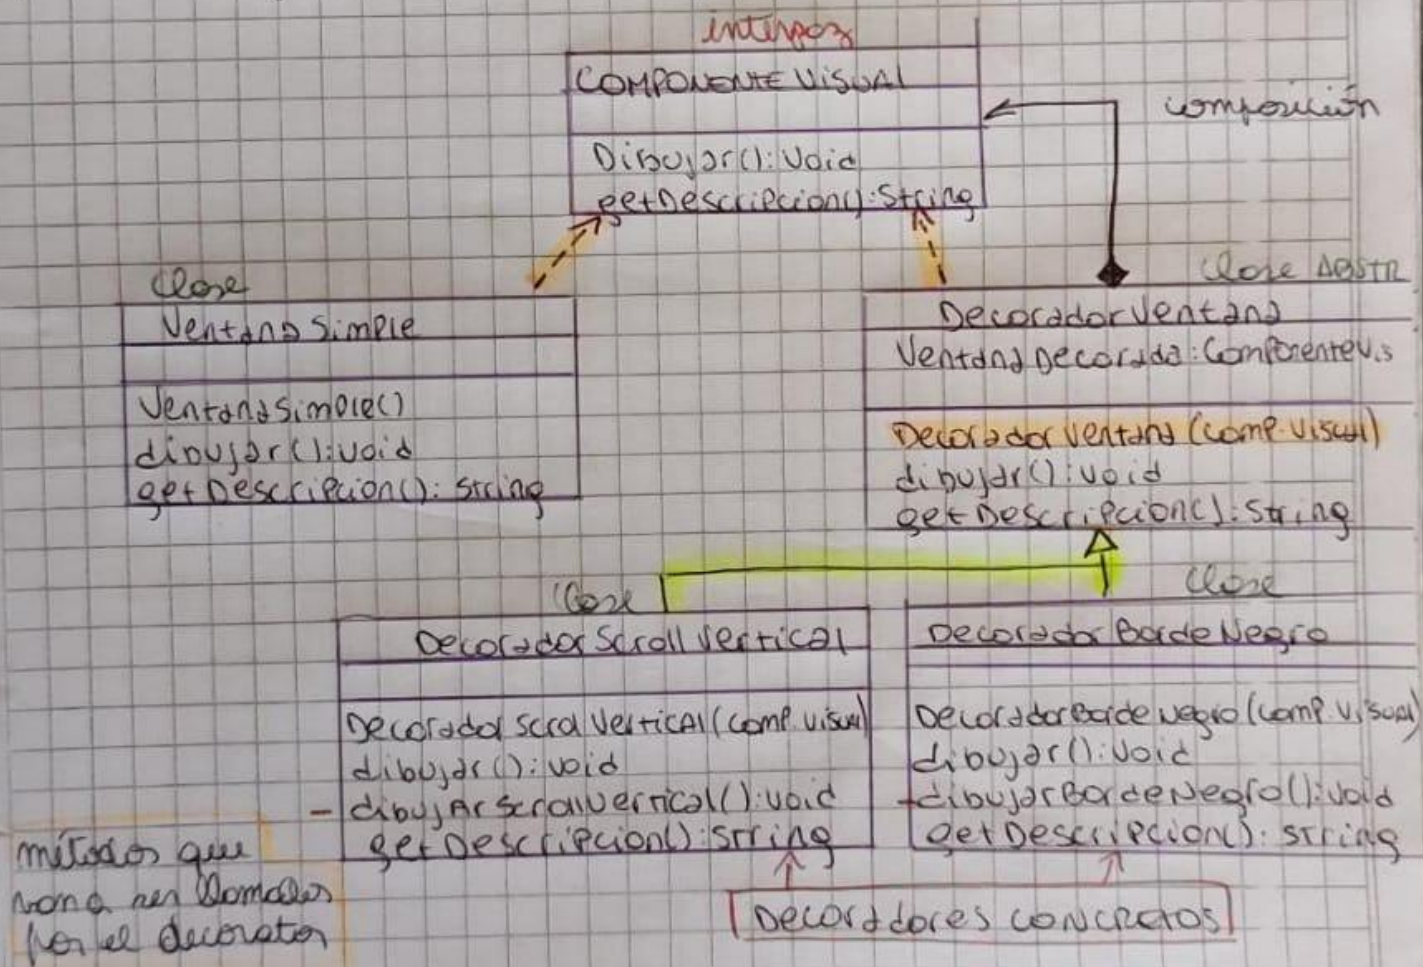 interfaz
COMPONENTE VISUAL
Dibujar(): Void
getDescripcion(): String
composición
Clase
Ventana Simple
VentanaSimple()
dibujar(): void
getDescripcion(): String
Clase ABSTR
DecoradorVentana
VentanaDecorada: ComponenteVis
DecoradorVentana (comp. visual)
dibujar(): void
getDescripcion(): String
Clase
DecoradorScrollVertical
DecoradorScrolVertical (comp. visual)
dibujar(): void
- dibujArScrolVertical(): void
getDescripcion(): String
Clase
DecoradorBordeNegro
DecoradorBordeNegro (comp. visual)
dibujar(): void
-dibujarBordeNegro(): void
getDescripcion(): string
métodos que
van a ser llamados
por el decorator
Decoradores CONCRETOS